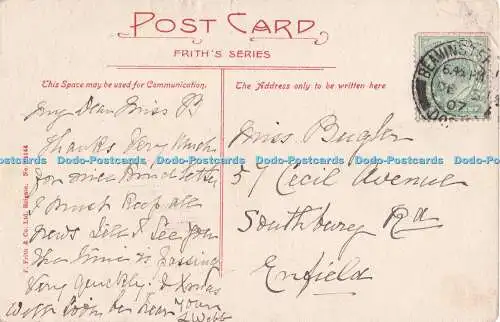 POST CARD
FRITH'S SERIES
This Space may be used for Communication.
The Address only to be written here
BEAMINSTER
DE
07
My Dear Miss B
Thanks Very Much
for nice kind letter
I must keep all
news till I see you
the time is passing
Very quickly. & Xmas
Will soon be here
Your
L Webb
Miss Bugler
57 Cecil Avenue
Southbury Rd
Enfield
F. Frith & Co. Ltd., Reigate. No.
Dodo-Postcards Dodo-Postcards Dodo-Postcards Dodo-Postcards Dodo-Postcards Dodo-Postcards